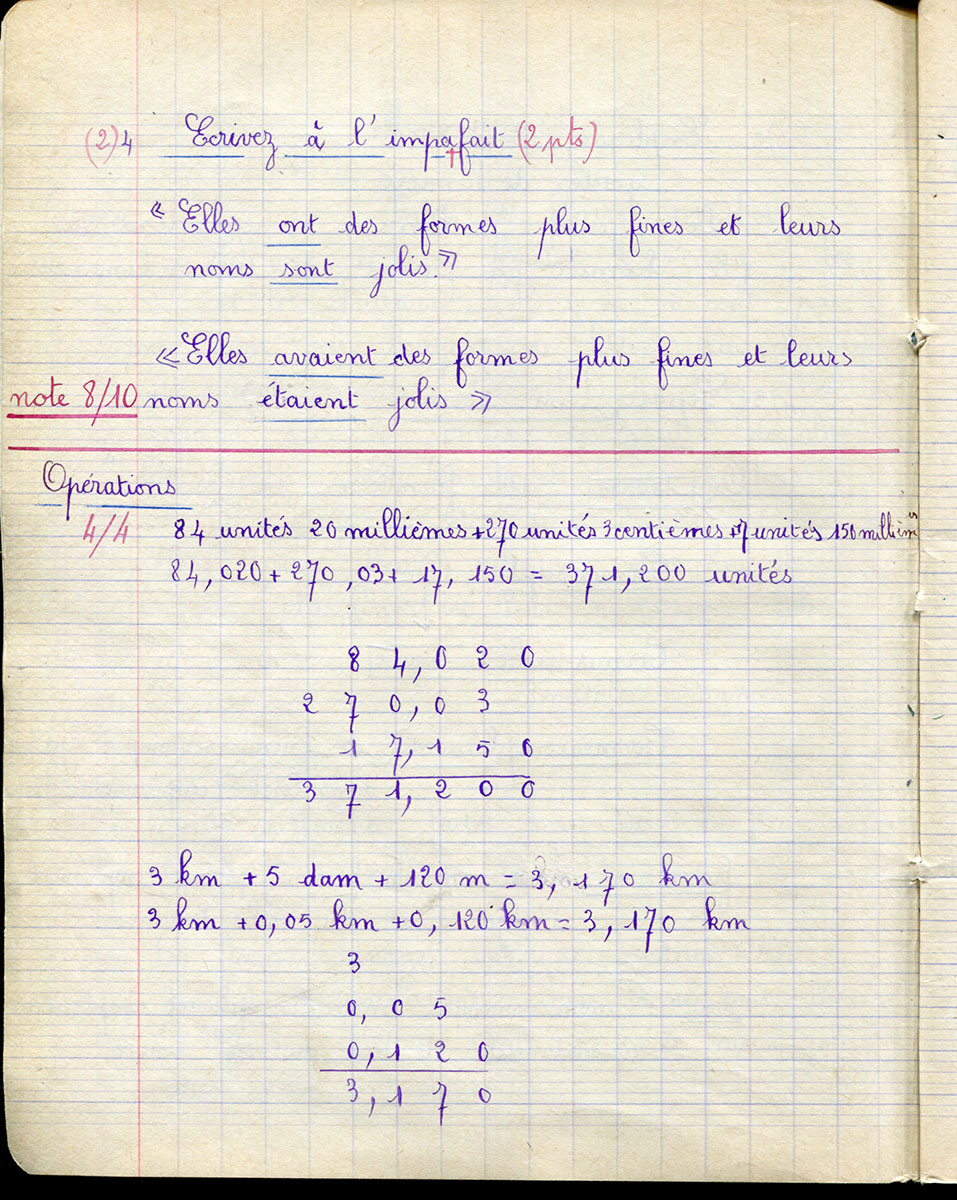 (2) 4 Ecrivez à l'impafait (2 pts)
r
« Elles ont des formes plus fines et leurs
noms sont jolis. »
« Elles avaient des formes plus fines et leurs
note 8/10 noms étaient jolis »
Opérations
4/4 84 unités 20 millièmes + 270 unités 3 centièmes + 17 unités 150 millièmes
84,020 + 270,03 + 17,150 = 371,200 unités
84,020
270,03
17,150
371,200
3 km + 5 dam + 120 m = 3,170 km
3 km + 0,05 km + 0,120 km = 3,170 km
3
0,05
0,120
3,170